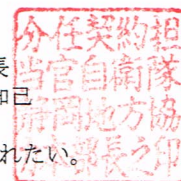 長
己
れたい。
分任契約担
当官自衛隊
岡地方協
本部長之印